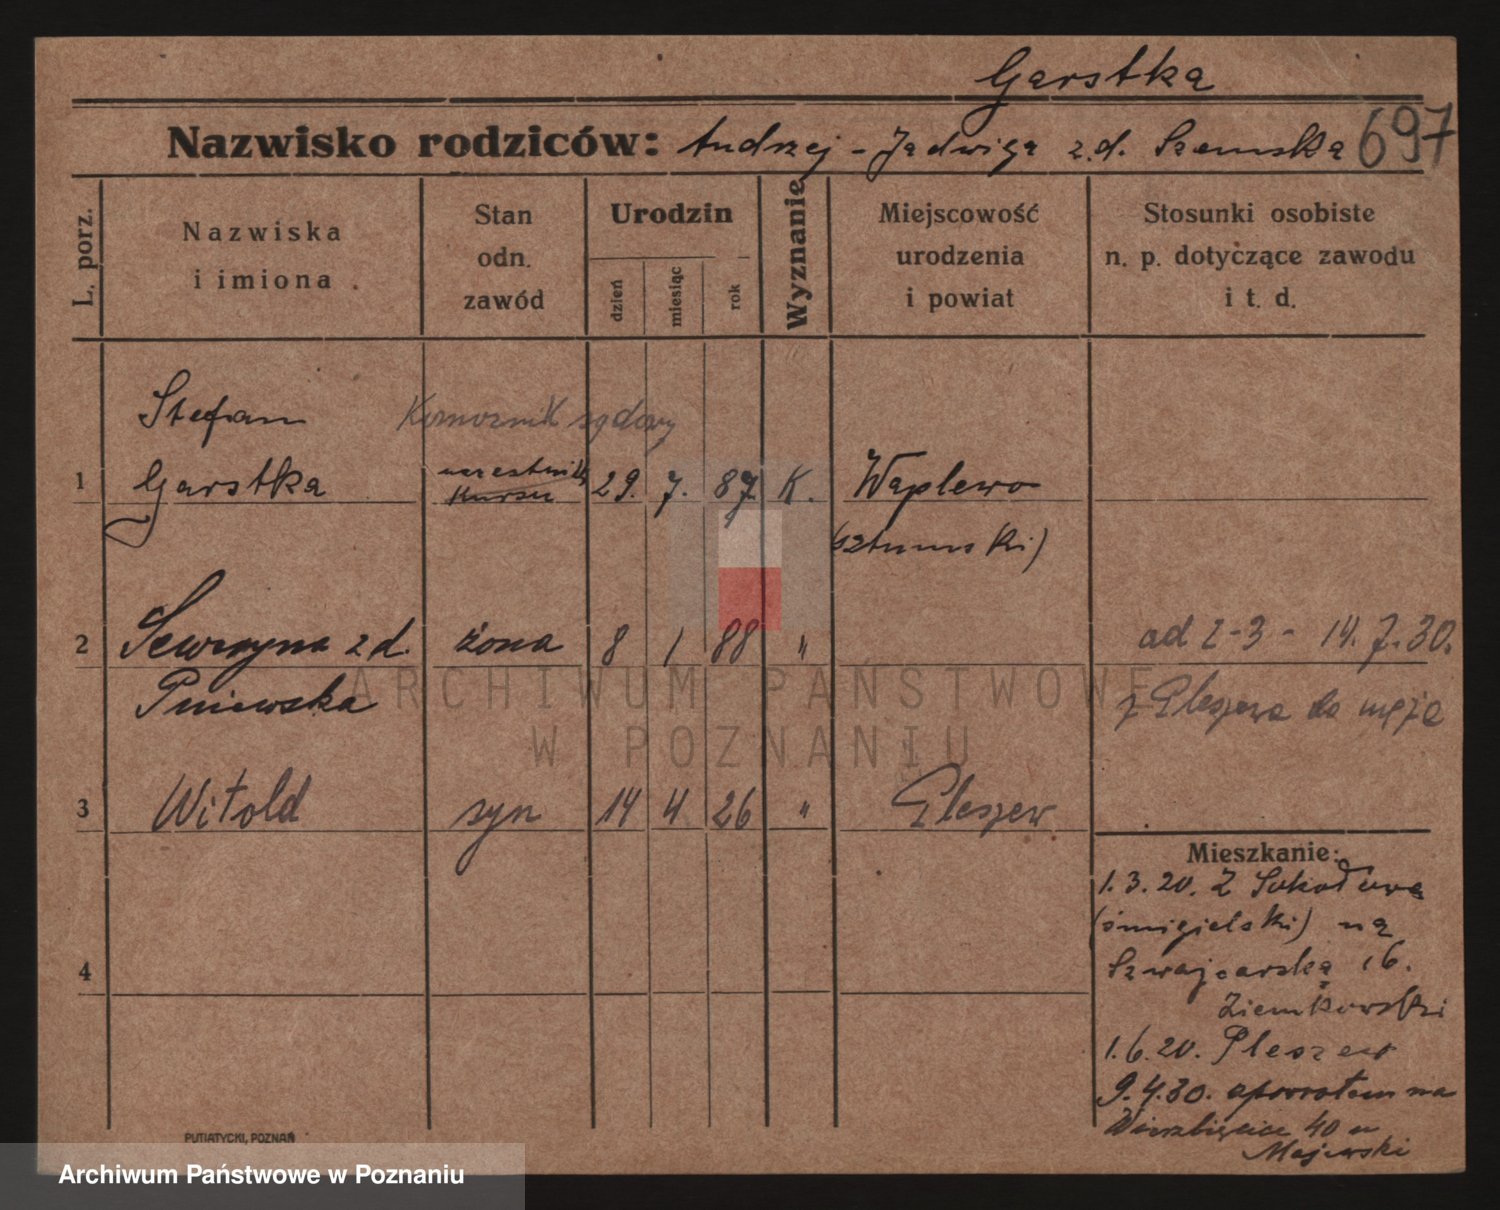 Garstka
Nazwisko rodziców: Andrzej - Jadwiga z.d. Szemska 697
L. porz.
Nazwiska
i imiona
Stan
odn.
zawód
Urodzin
dzień
miesiąc
rok
Wyznanie
Miejscowość
urodzenia
i powiat
Stosunki osobiste
n. p. dotyczące zawodu
i t. d.
Stefan Komornik sądowy
1 Garstka uczestnik 29. 7. 87 K. Waplewo
kursu (sztumski)
2 Seweryna z d. żona 8 1 88 " od 2-3 - 14.7.30.
Pniewska z Pleszewa do męża
3 Witold syn 14 4 26 " Pleszew
4
Mieszkanie:
1.3.20. Z Sokołowa
(śmigielski) na
Szwajcarską 16.
Ziemkowski
1.6.20. Pleszew
9.4.30. z powrotem na
Wierzbięcice 40 u
Majewski
PUTIATYCKI, POZNAŃ
ARCHIWUM PAŃSTWOWE
W POZNANIU
Archiwum Państwowe w Poznaniu